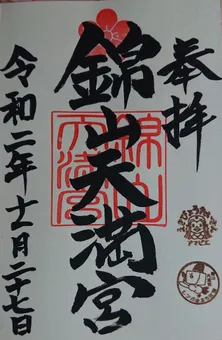 奉拝
錦山天満宮
令和二年十一月二十七日